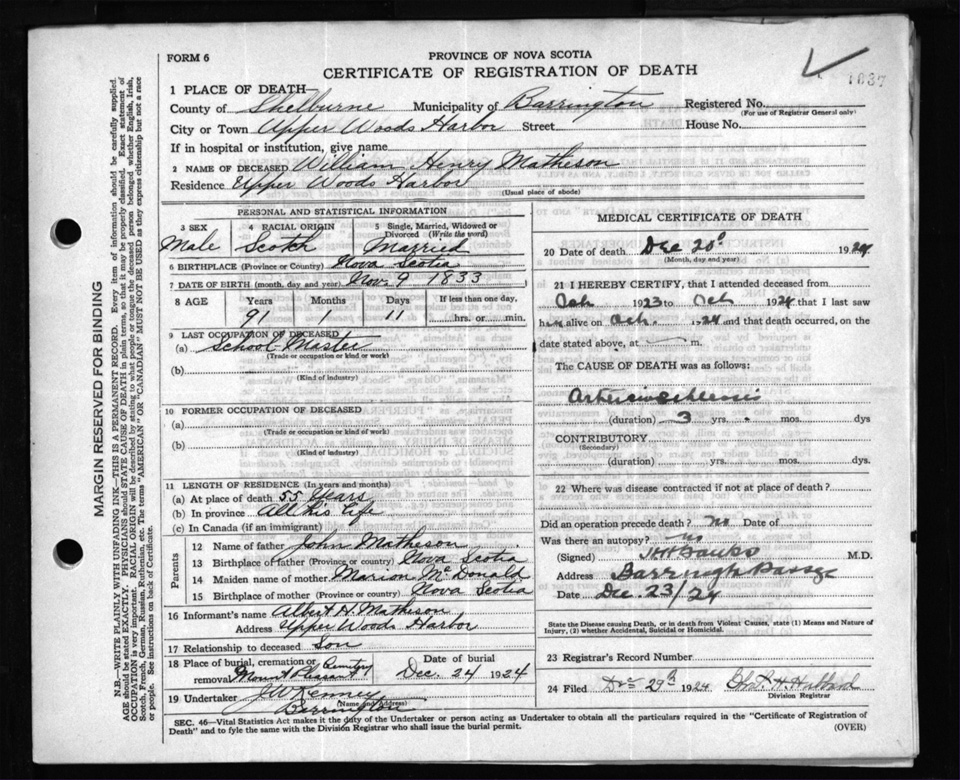 FORM 6
PROVINCE OF NOVA SCOTIA
CERTIFICATE OF REGISTRATION OF DEATH
1837
1 PLACE OF DEATH
County of Shelburne Municipality of Barrington Registered No.
(For use of Registrar General only)
City or Town Upper Woods Harbor Street House No.
If in hospital or institution, give name
2 NAME OF DECEASED William Henry Matheson
Residence Upper Woods Harbor
(Usual place of abode)
PERSONAL AND STATISTICAL INFORMATION
3 SEX 4 RACIAL ORIGIN 5 Single, Married, Widowed or Divorced (Write the word)
Male Scotch Married
6 BIRTHPLACE (Province or Country) Nova Scotia
7 DATE OF BIRTH (month, day and year) Nov 9 1833
8 AGE Years Months Days If less than one day,
91 1 11 hrs. or min.
9 LAST OCCUPATION OF DECEASED
(a) School Master
(Trade or occupation or kind or work)
(b)
(Kind of industry)
10 FORMER OCCUPATION OF DECEASED
(a)
(Trade or occupation or kind or work)
(b)
(Kind of industry)
11 LENGTH OF RESIDENCE (In years and months)
(a) At place of death 55 Years
(b) In province All his life
(c) In Canada (if an immigrant)
Parents
12 Name of father John Matheson
13 Birthplace of father (Province or country) Nova Scotia
14 Maiden name of mother Marion McDonald
15 Birthplace of mother (Province or country) Nova Scotia
16 Informant's name Albert H. Matheson
Address Upper Woods Harbor
17 Relationship to deceased Son
18 Place of burial, cremation or removal Mount Pleasant Cemetery Date of burial Dec. 24 1924
19 Undertaker J W Kenney
(Name and Address)
Barrington
MEDICAL CERTIFICATE OF DEATH
20 Date of death Dec 20 1924
(Month, day and year)
21 I HEREBY CERTIFY, that I attended deceased from
Oct 1923 to Oct 1924 that I last saw
him alive on Oct. 1924 and that death occurred, on the
date stated above, at m.
The CAUSE OF DEATH was as follows:
(duration) 3 yrs. mos. dys
CONTRIBUTORY
(Secondary)
(duration) yrs. mos. dys.
22 Where was disease contracted if not at place of death?
Did an operation precede death? no Date of
Was there an autopsy? no
(Signed) Banks M.D.
Address Barrington Passage
Date Dec. 23/24
State the Disease causing Death, or in death from Violent Causes, state (1) Means and Nature of
Injury, (2) whether Accidental, Suicidal or Homicidal.
23 Registrar's Record Number
24 Filed Dec 29th 1924 Chas. H. Hubbard
Division Registrar
SEC. 46—Vital Statistics Act makes it the duty of the Undertaker or person acting as Undertaker to obtain all the particulars required in the "Certificate of Registration of
Death" and to fyle the same with the Division Registrar who shall issue the burial permit. (OVER)
MARGIN RESERVED FOR BINDING
N.B.—WRITE PLAINLY WITH UNFADING INK—THIS IS A PERMANENT RECORD. Every item of information should be carefully supplied.
AGE should be stated EXACTLY. PHYSICIANS should STATE CAUSE OF DEATH in plain terms, so that it may be properly classified. Exact statement of
OCCUPATION is very important. RACIAL ORIGIN will be described by stating to what people or tongue the deceased person belonged, whether English, Irish,
Scotch, French, German, Russian, Ruthenian, etc. The terms "AMERICAN" OR "CANADIAN" MUST NOT BE USED as they express citizenship but not a race
or people. See instructions on back of Certificate.